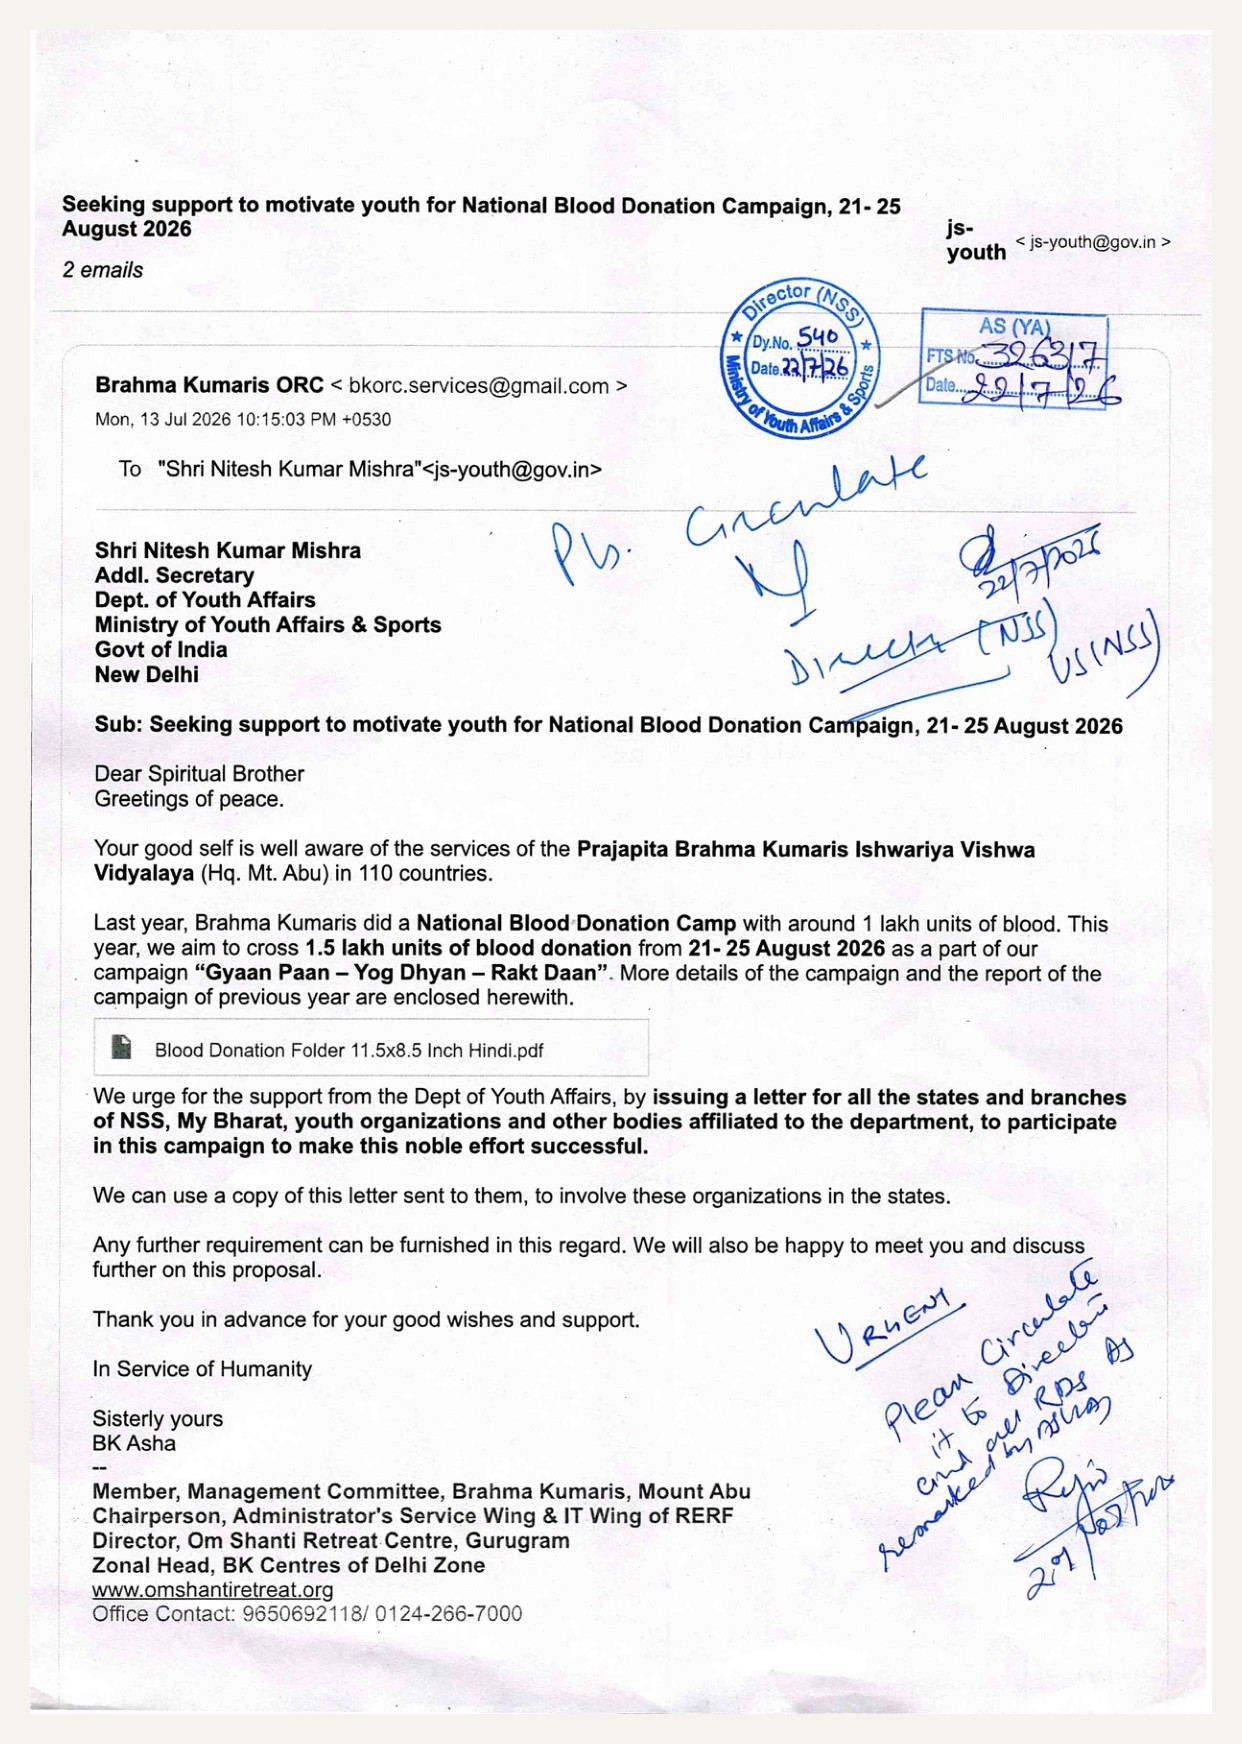 Seeking support to motivate youth for National Blood Donation Campaign, 21- 25
August 2026
js-
youth < js-youth@gov.in >
2 emails
Director (NSS)
Dy.No. 540
Date 22/7/26
Ministry of Youth Affairs & Sports
AS (YA)
FTS No. 326317
Date 22/7/26
Brahma Kumaris ORC < bkorc.services@gmail.com >
Mon, 13 Jul 2026 10:15:03 PM +0530
To "Shri Nitesh Kumar Mishra"<js-youth@gov.in>
Pls. Circulate
22/7/2026
Director (NSS)
US (NSS)
Shri Nitesh Kumar Mishra
Addl. Secretary
Dept. of Youth Affairs
Ministry of Youth Affairs & Sports
Govt of India
New Delhi
Sub: Seeking support to motivate youth for National Blood Donation Campaign, 21- 25 August 2026
Dear Spiritual Brother
Greetings of peace.
Your good self is well aware of the services of the Prajapita Brahma Kumaris Ishwariya Vishwa
Vidyalaya (Hq. Mt. Abu) in 110 countries.
Last year, Brahma Kumaris did a National Blood Donation Camp with around 1 lakh units of blood. This
year, we aim to cross 1.5 lakh units of blood donation from 21- 25 August 2026 as a part of our
campaign “Gyaan Paan – Yog Dhyan – Rakt Daan”. More details of the campaign and the report of the
campaign of previous year are enclosed herewith.
Blood Donation Folder 11.5x8.5 Inch Hindi.pdf
We urge for the support from the Dept of Youth Affairs, by issuing a letter for all the states and branches
of NSS, My Bharat, youth organizations and other bodies affiliated to the department, to participate
in this campaign to make this noble effort successful.
We can use a copy of this letter sent to them, to involve these organizations in the states.
Any further requirement can be furnished in this regard. We will also be happy to meet you and discuss
further on this proposal.
Thank you in advance for your good wishes and support.
In Service of Humanity
Sisterly yours
BK Asha
--
Member, Management Committee, Brahma Kumaris, Mount Abu
Chairperson, Administrator's Service Wing & IT Wing of RERF
Director, Om Shanti Retreat Centre, Gurugram
Zonal Head, BK Centres of Delhi Zone
www.omshantiretreat.org
Office Contact: 9650692118/ 0124-266-7000
URGENT
Please Circulate
it to
and all RDs As
remarked by